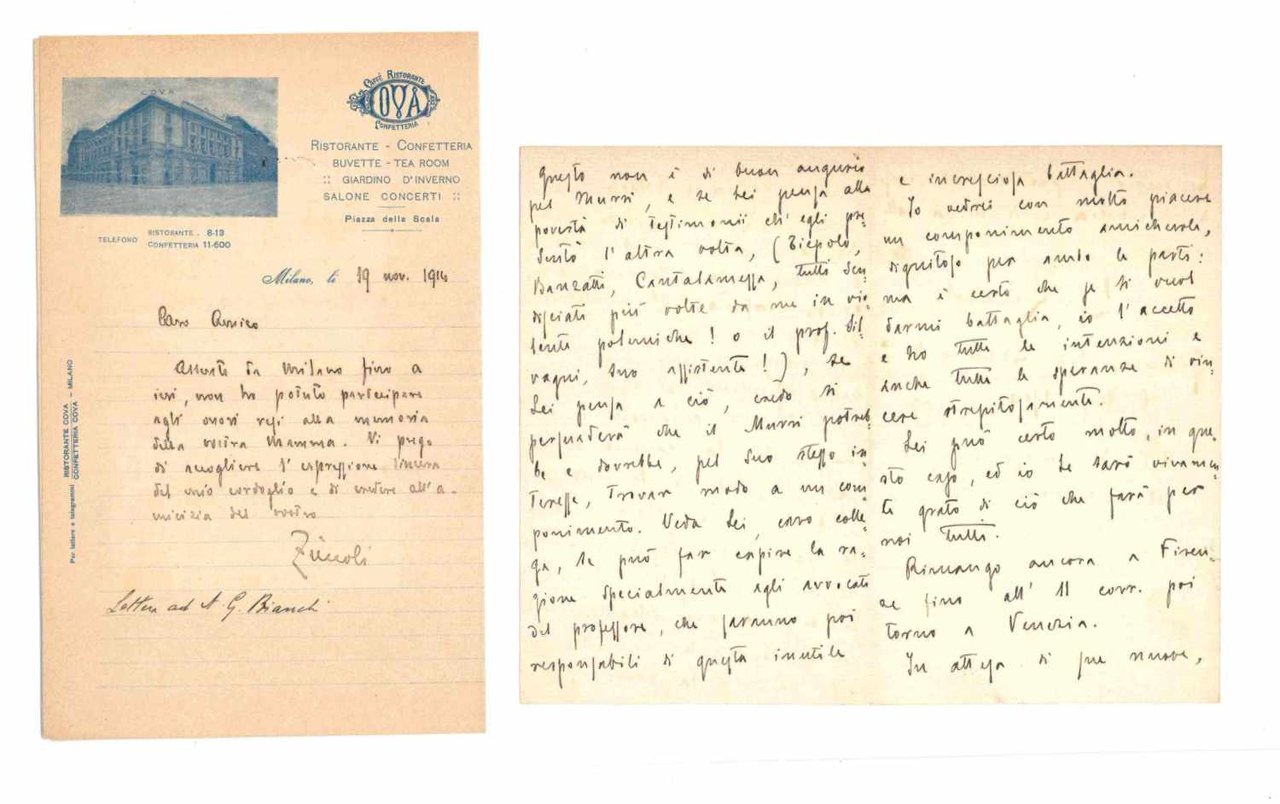 COVA
CAFFÈ RISTORANTE
COVA
CONFETTERIA
RISTORANTE - CONFETTERIA
BUVETTE - TEA ROOM
:: GIARDINO D'INVERNO
SALONE CONCERTI ::
Piazza della Scala
TELEFONO
RISTORANTE . 8-13
CONFETTERIA 11-600
Milano, li 19 nov. 1914
Caro Amico
Assente da Milano fino a
ieri, non ho potuto partecipare
agli onori resi alla memoria
della vostra Mamma. Vi prego
di accogliere l'espressione sincera
del mio cordoglio e di credere all'a-
micizia del vostro
Zùccoli
Lettera ad A. G. Bianchi
Per lettere e telegrammi
RISTORANTE COVA
CONFETTERIA COVA - MILANO
Questo non è di buon augurio
pel Murri, e se Lei pensa alla
povertà di testimonii ch'egli pre-
sentò l'altra volta, (Tiepolo,
Banzatti, Cantalamessa, tutti scu-
disciati più volte da me in vio-
lente polemiche! o il prof. Sil-
vagni, suo assistente!), se
Lei pensa a ciò, credo si
persuaderà che il Murri potreb-
be e dovrebbe, pel suo stesso in-
teresse, trovar modo a un com-
ponimento. Veda Lei, caro colle-
ga, se può far capire la ra-
gione specialmente agli avvocati
del professore, che saranno poi
responsabili di questa inutile
e incresciosa battaglia.
Io vedrei con molto piacere
un componimento amichevole,
dignitoso per ambo le parti:
ma è certo che se si vuol
darmi battaglia, io l'accetto
e ho tutte le intenzioni e
anche tutte le speranze di vin-
cere strepitosamente.
Lei può certo molto, in que-
sto caso, ed io Le sarò vivamen-
te grato di ciò che farà per
noi tutti.
Rimango ancora a Firen-
ze fino all'11 corr. poi
torno a Venezia.
In attesa di sue nuove,